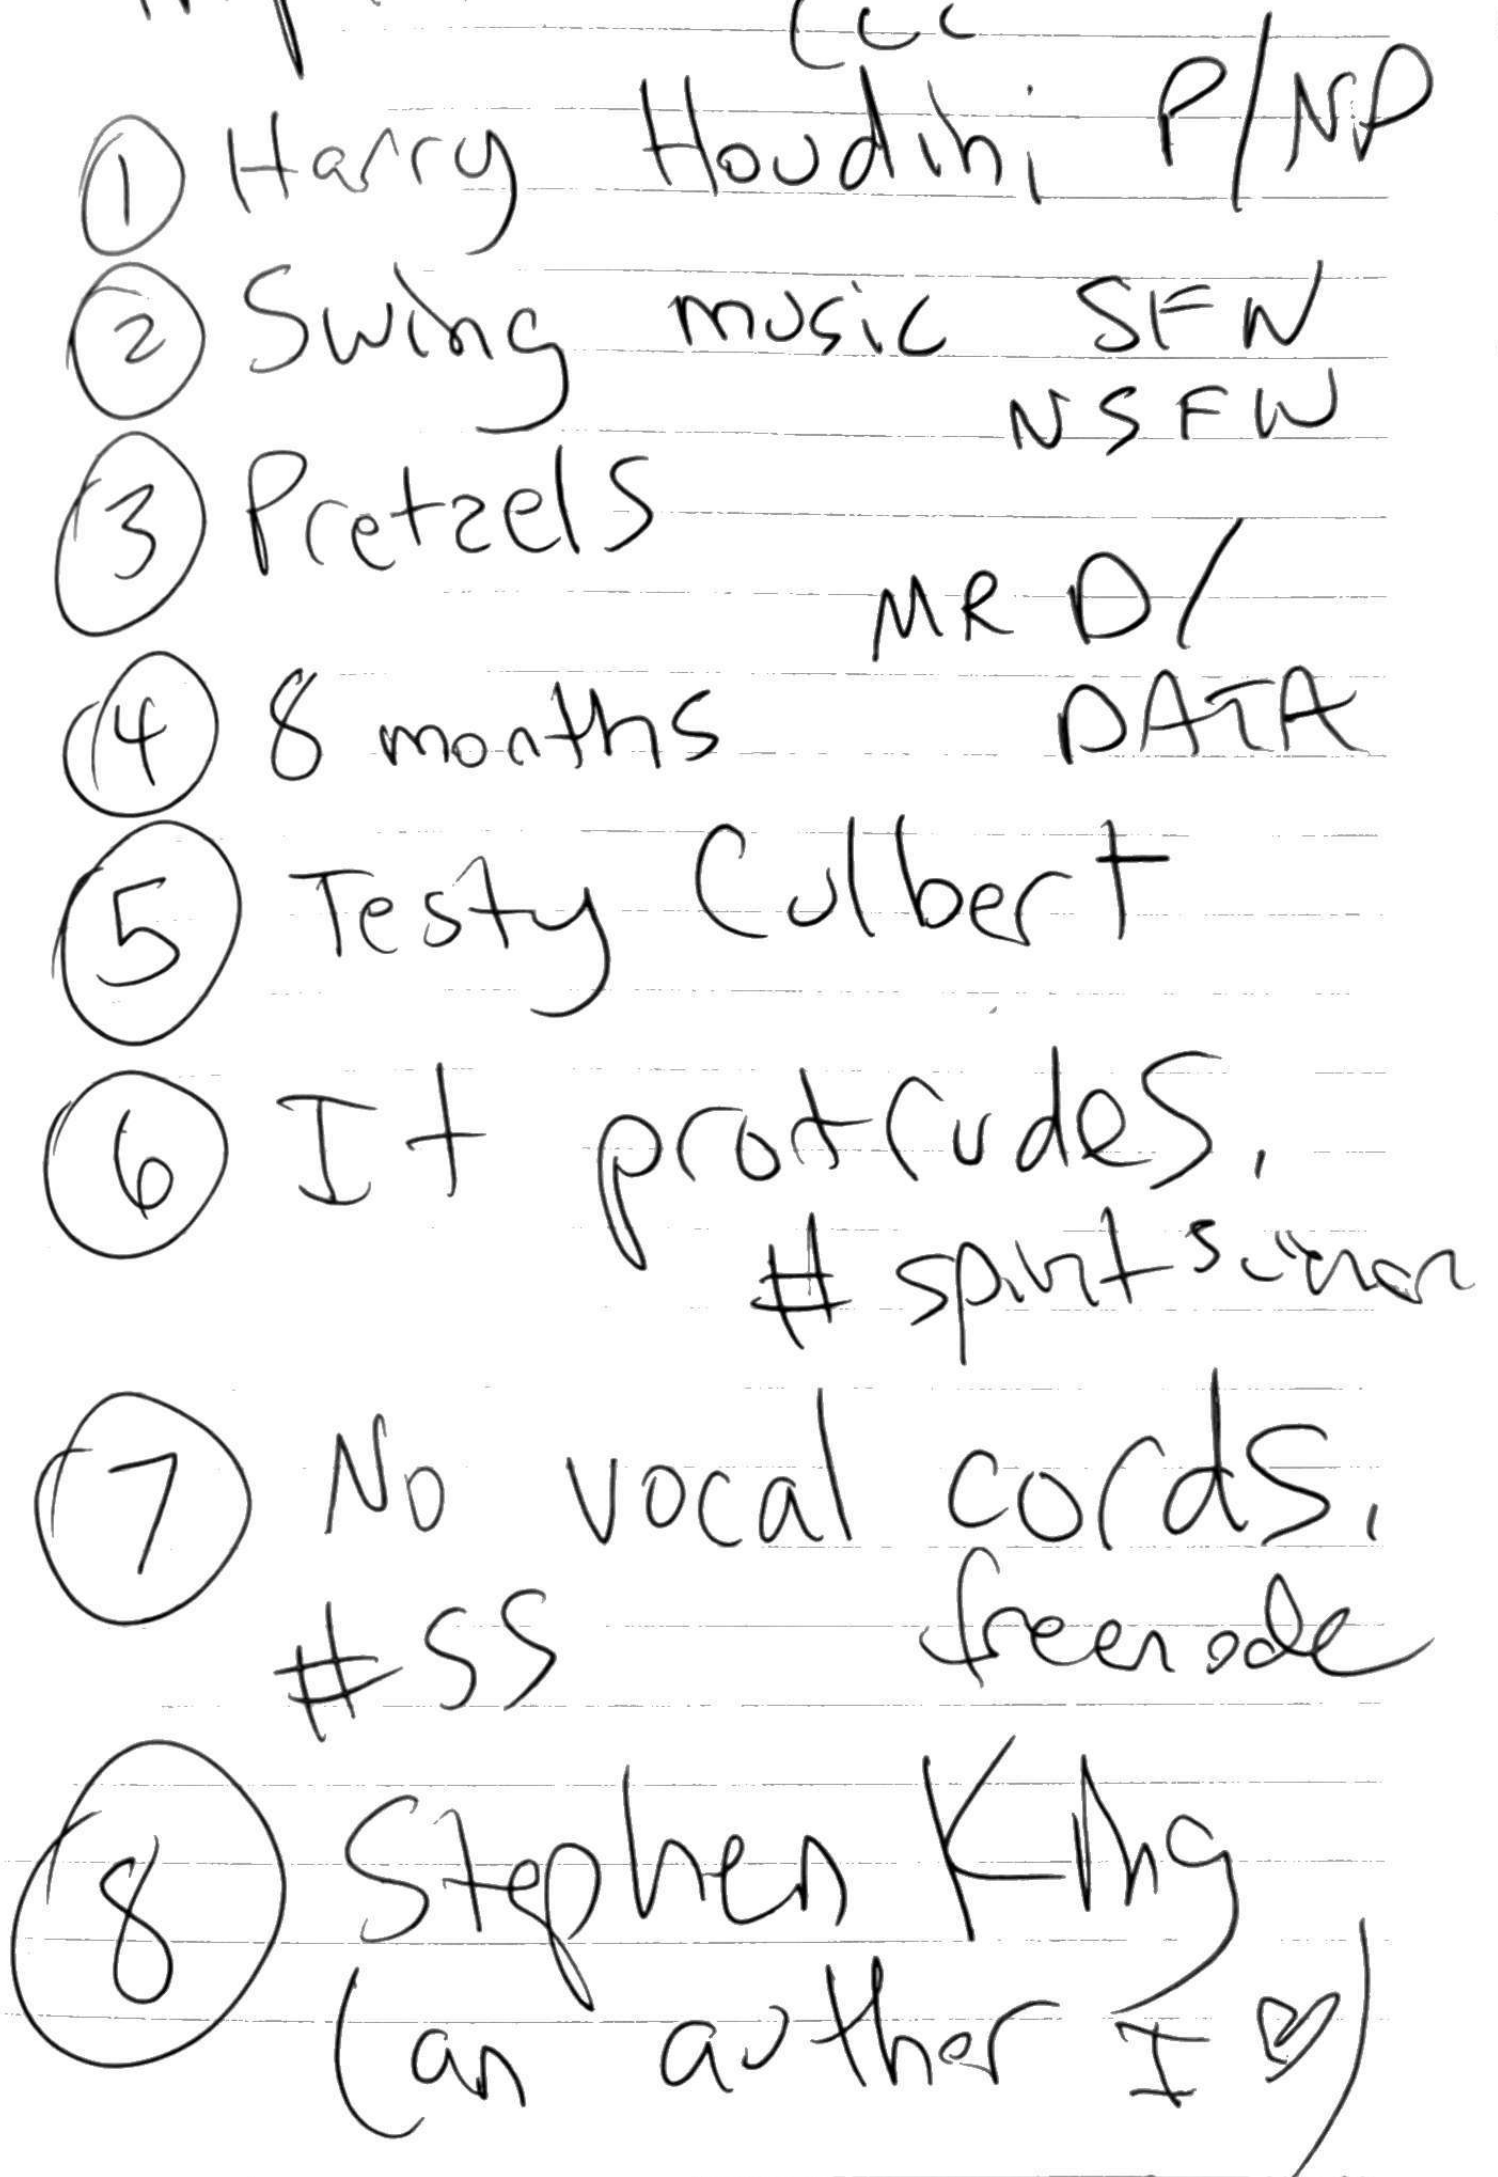 ① Harry Houdini P/NP
② Swing music SFW
NSFW
③ Pretzels
MR D/
④ 8 months DATA
⑤ Testy Culbert
⑥ It protrudes.
# spirit
⑦ No vocal cords.
#SS freenode
⑧ Stephen King
(an author I ♡)